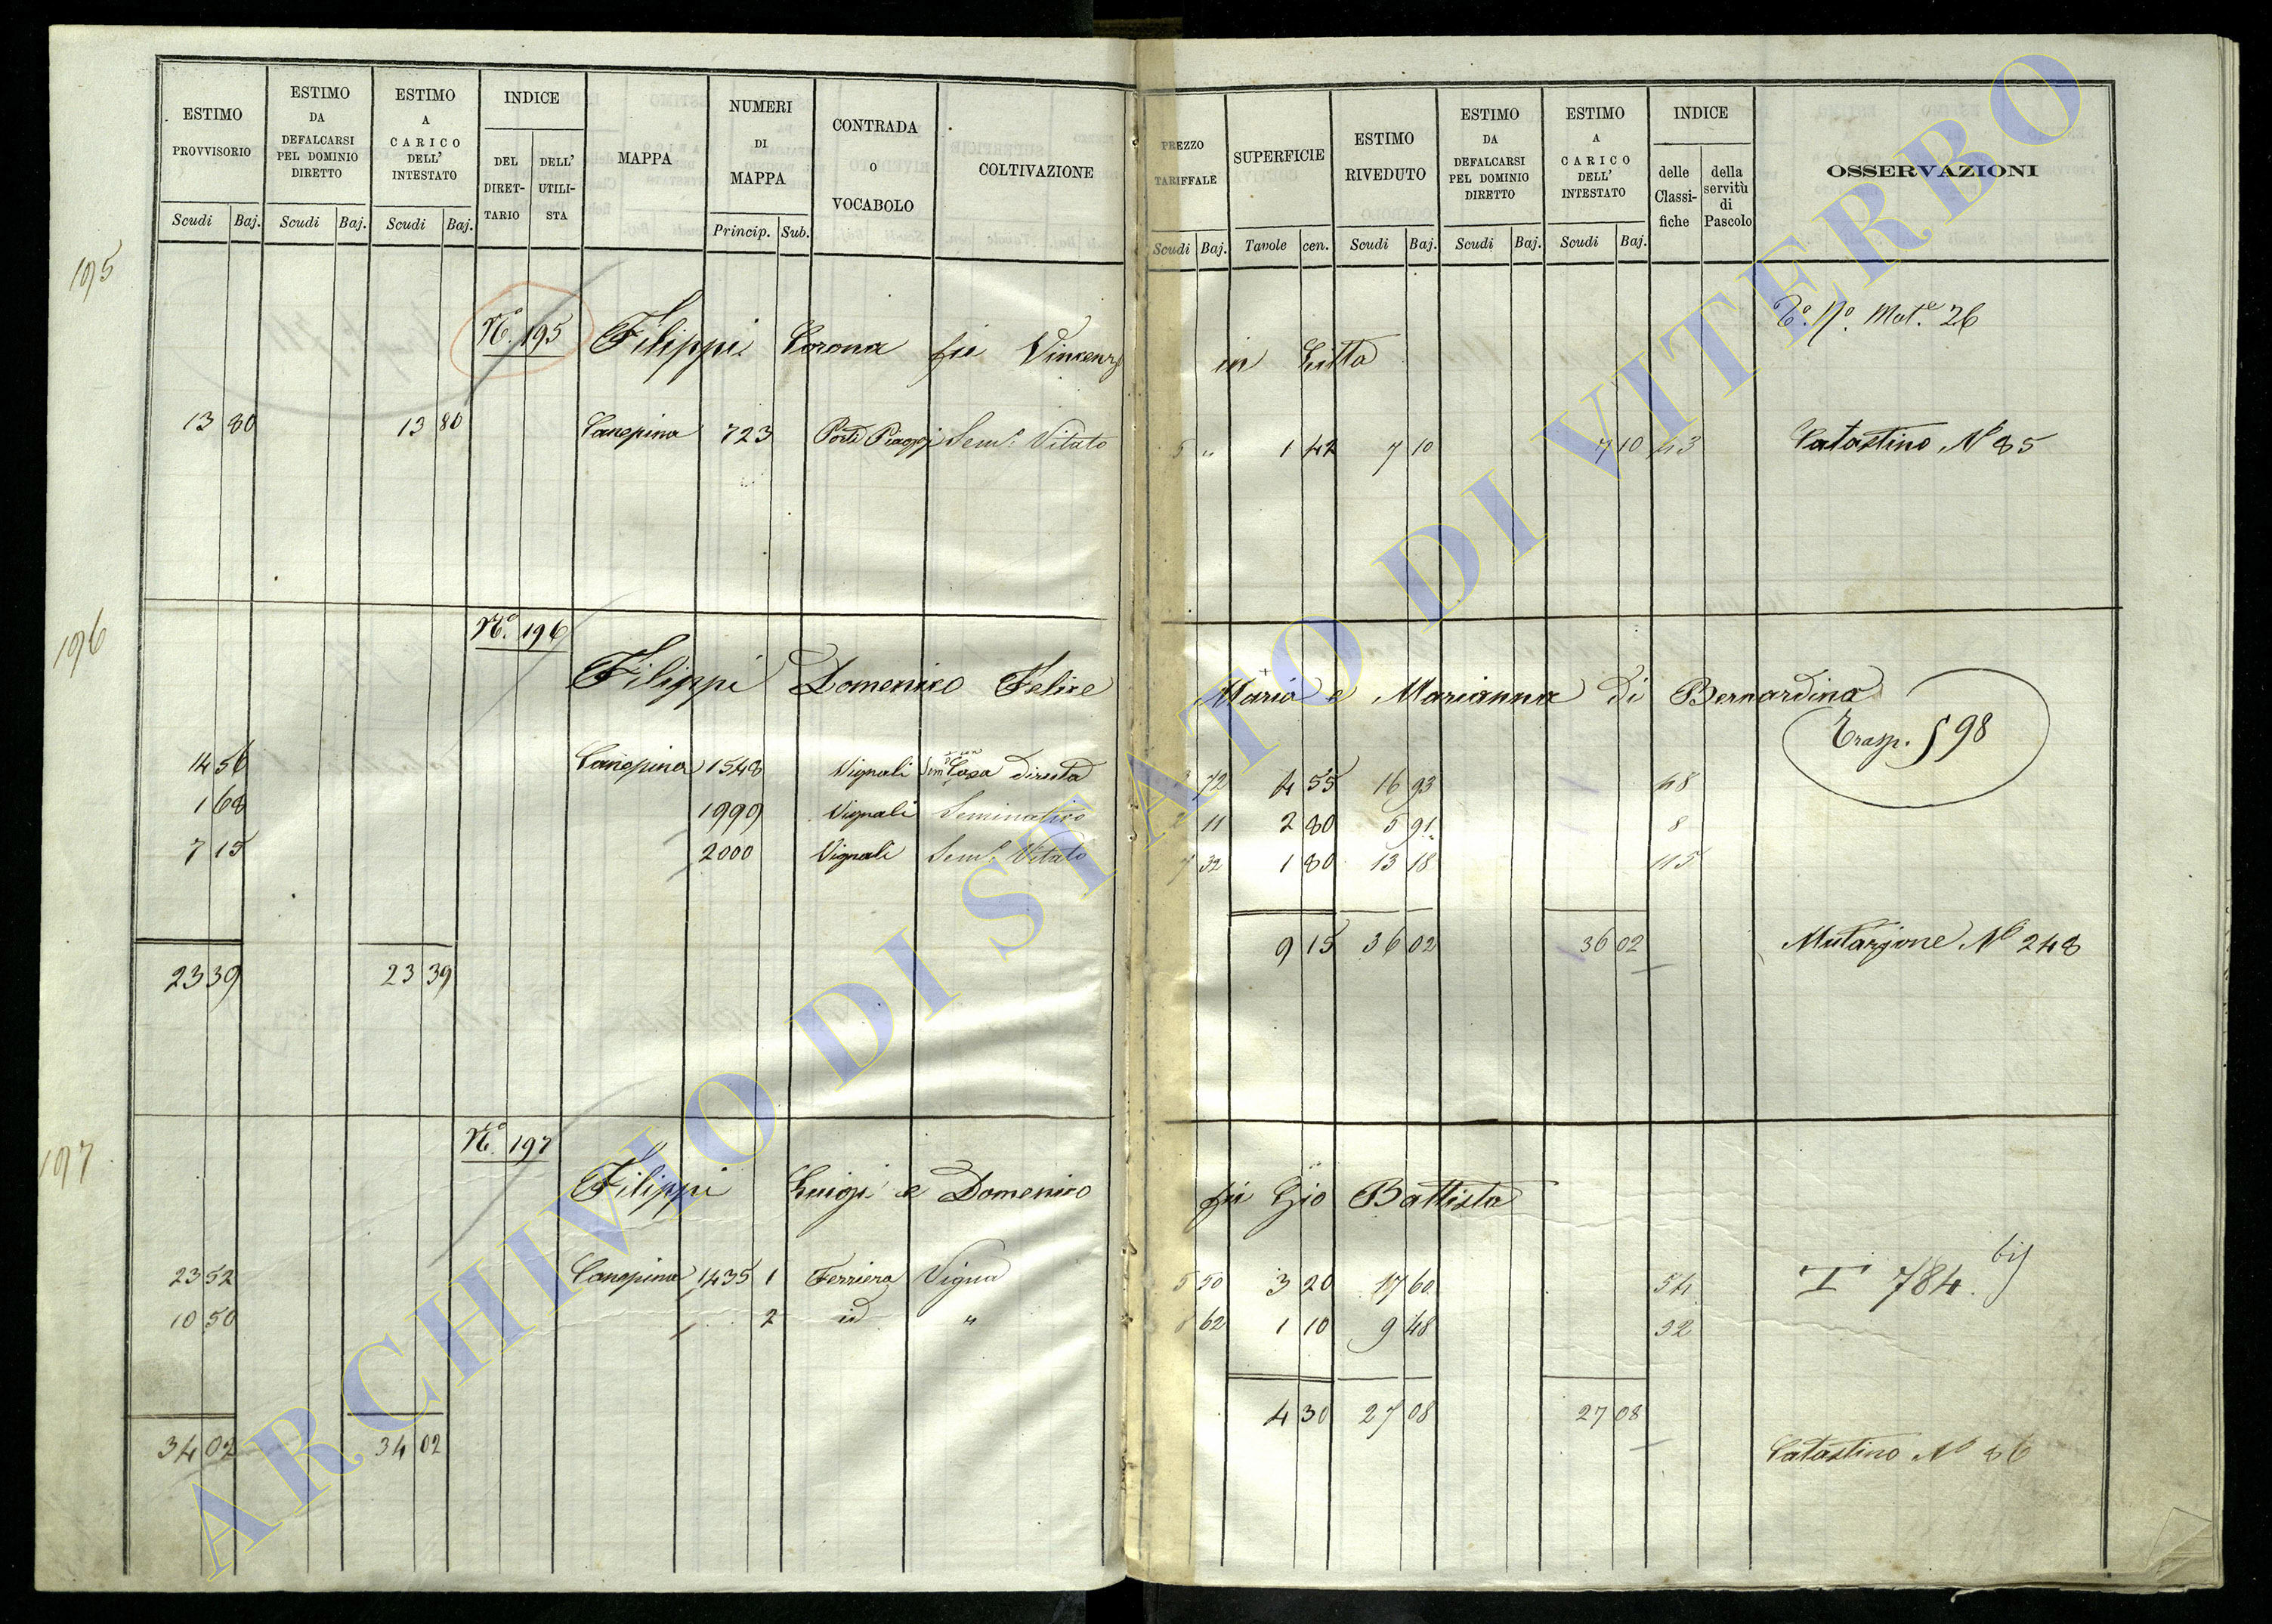 ESTIMO PROVVISORIO
ESTIMO DA DEFALCARSI PEL DOMINIO DIRETTO
ESTIMO A CARICO DELL' INTESTATO
INDICE
DEL DIRET-TARIO
DELL' UTILI-STA
MAPPA
NUMERI DI MAPPA
CONTRADA O VOCABOLO
COLTIVAZIONE
PREZZO TARIFFALE
SUPERFICIE
ESTIMO RIVEDUTO
ESTIMO DA DEFALCARSI PEL DOMINIO DIRETTO
ESTIMO A CARICO DELL' INTESTATO
INDICE
delle Classi-fiche
della servitù di Pascolo
OSSERVAZIONI
Scudi Baj. Scudi Baj. Scudi Baj. Princip. Sub. Scudi Baj. Tavole cen. Scudi Baj. Scudi Baj. Scudi Baj.
195
Nº 195 Filippi Corona fu Vincenzo in Litta Mat.e 26
13 80 13 80 Canepina 723 Sem.o Vitato 5 " 1 42 7 10 7 10 43 Catastino Nº 85
196
Nº 196
Filippi Domenico Felice Maria e Marianna di Bernardina
Trasp. § 98
14 56 Canepina 1548 Vignali Casa diruta 72 4 55 16 93 48
1 68 1999 Vignali Seminativo 2 11 2 80 5 91 8
7 15 2000 Vignali Sem.o Vitato 7 32 1 80 13 18 115
23 39 23 39 9 15 36 02 36 02 Mutazione Nº 248
197
Nº 197
Filippi Luigi e Domenico fu Gio Battista
23 52 Canepina 1435 1 Ferriera Vigna 5 50 3 20 17 60 54 T 784 bis
10 50 2 id " 8 62 1 10 9 48 32
34 02 34 02 4 30 27 08 27 08
Catastino Nº 86
ARCHIVIO DI STATO DI VITERBO